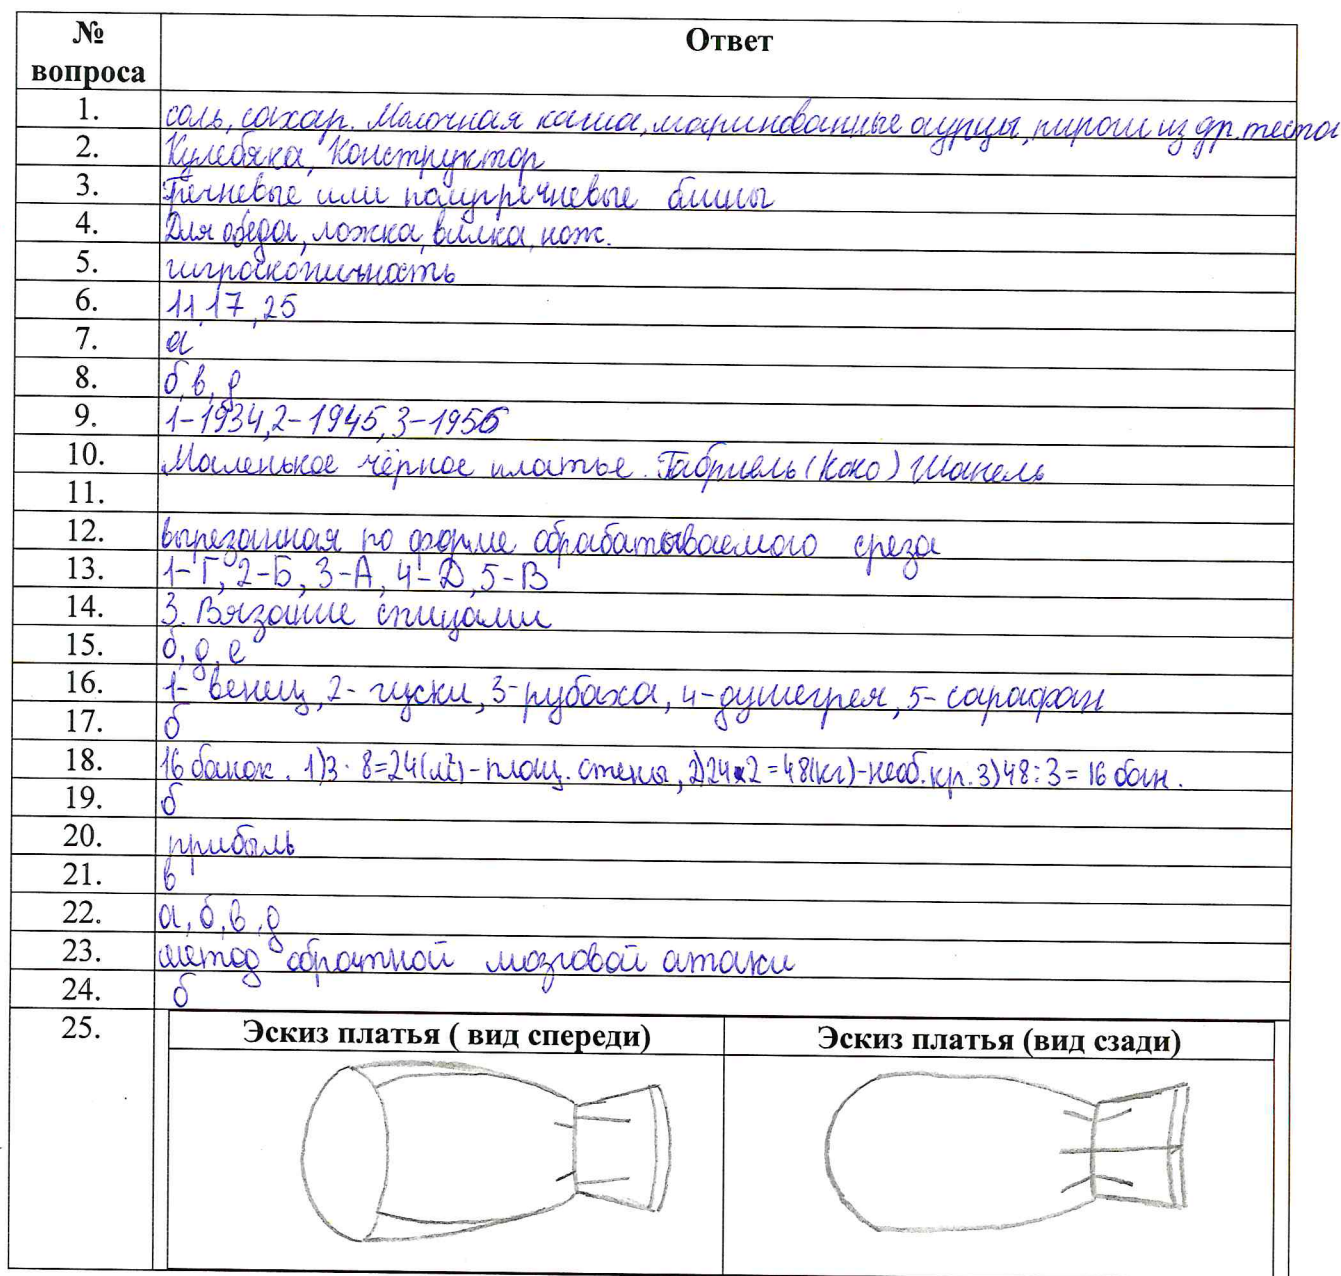 № вопроса Ответ
1. соль, сахар. Молочная каша, маринованные огурцы, пироги из др. теста
2. Кулебяка, Конструктор
3. Гречневые или полугречневые блины
4. Для обеда, ложка, вилка, нож.
5. гигроскопичность
6. 11, 17, 25
7. а
8. б, в, д
9. 1-1934, 2-1945, 3-1956
10. Маленькое чёрное платье. Габриель (Коко) Шанель
11.
12. вырезанная по форме обрабатываемого среза
13. 1-Г, 2-Б, 3-А, 4-Д, 5-В
14. 3. Вязание спицами
15. б, д, е
16. 1- венец, 2- гуски, 3-рубаха, 4-душегрея, 5- сарафан
17. б
18. 16 банок. 1)3·8=24(м²)-площ. стены, 2)24×2=48(кг)-необ.кр. 3)48:3=16 бан.
19. б
20. прибыль
21. в
22. а, б, в, д
23. метод обратной мозговой атаки
24. б
25. Эскиз платья ( вид спереди) Эскиз платья (вид сзади)